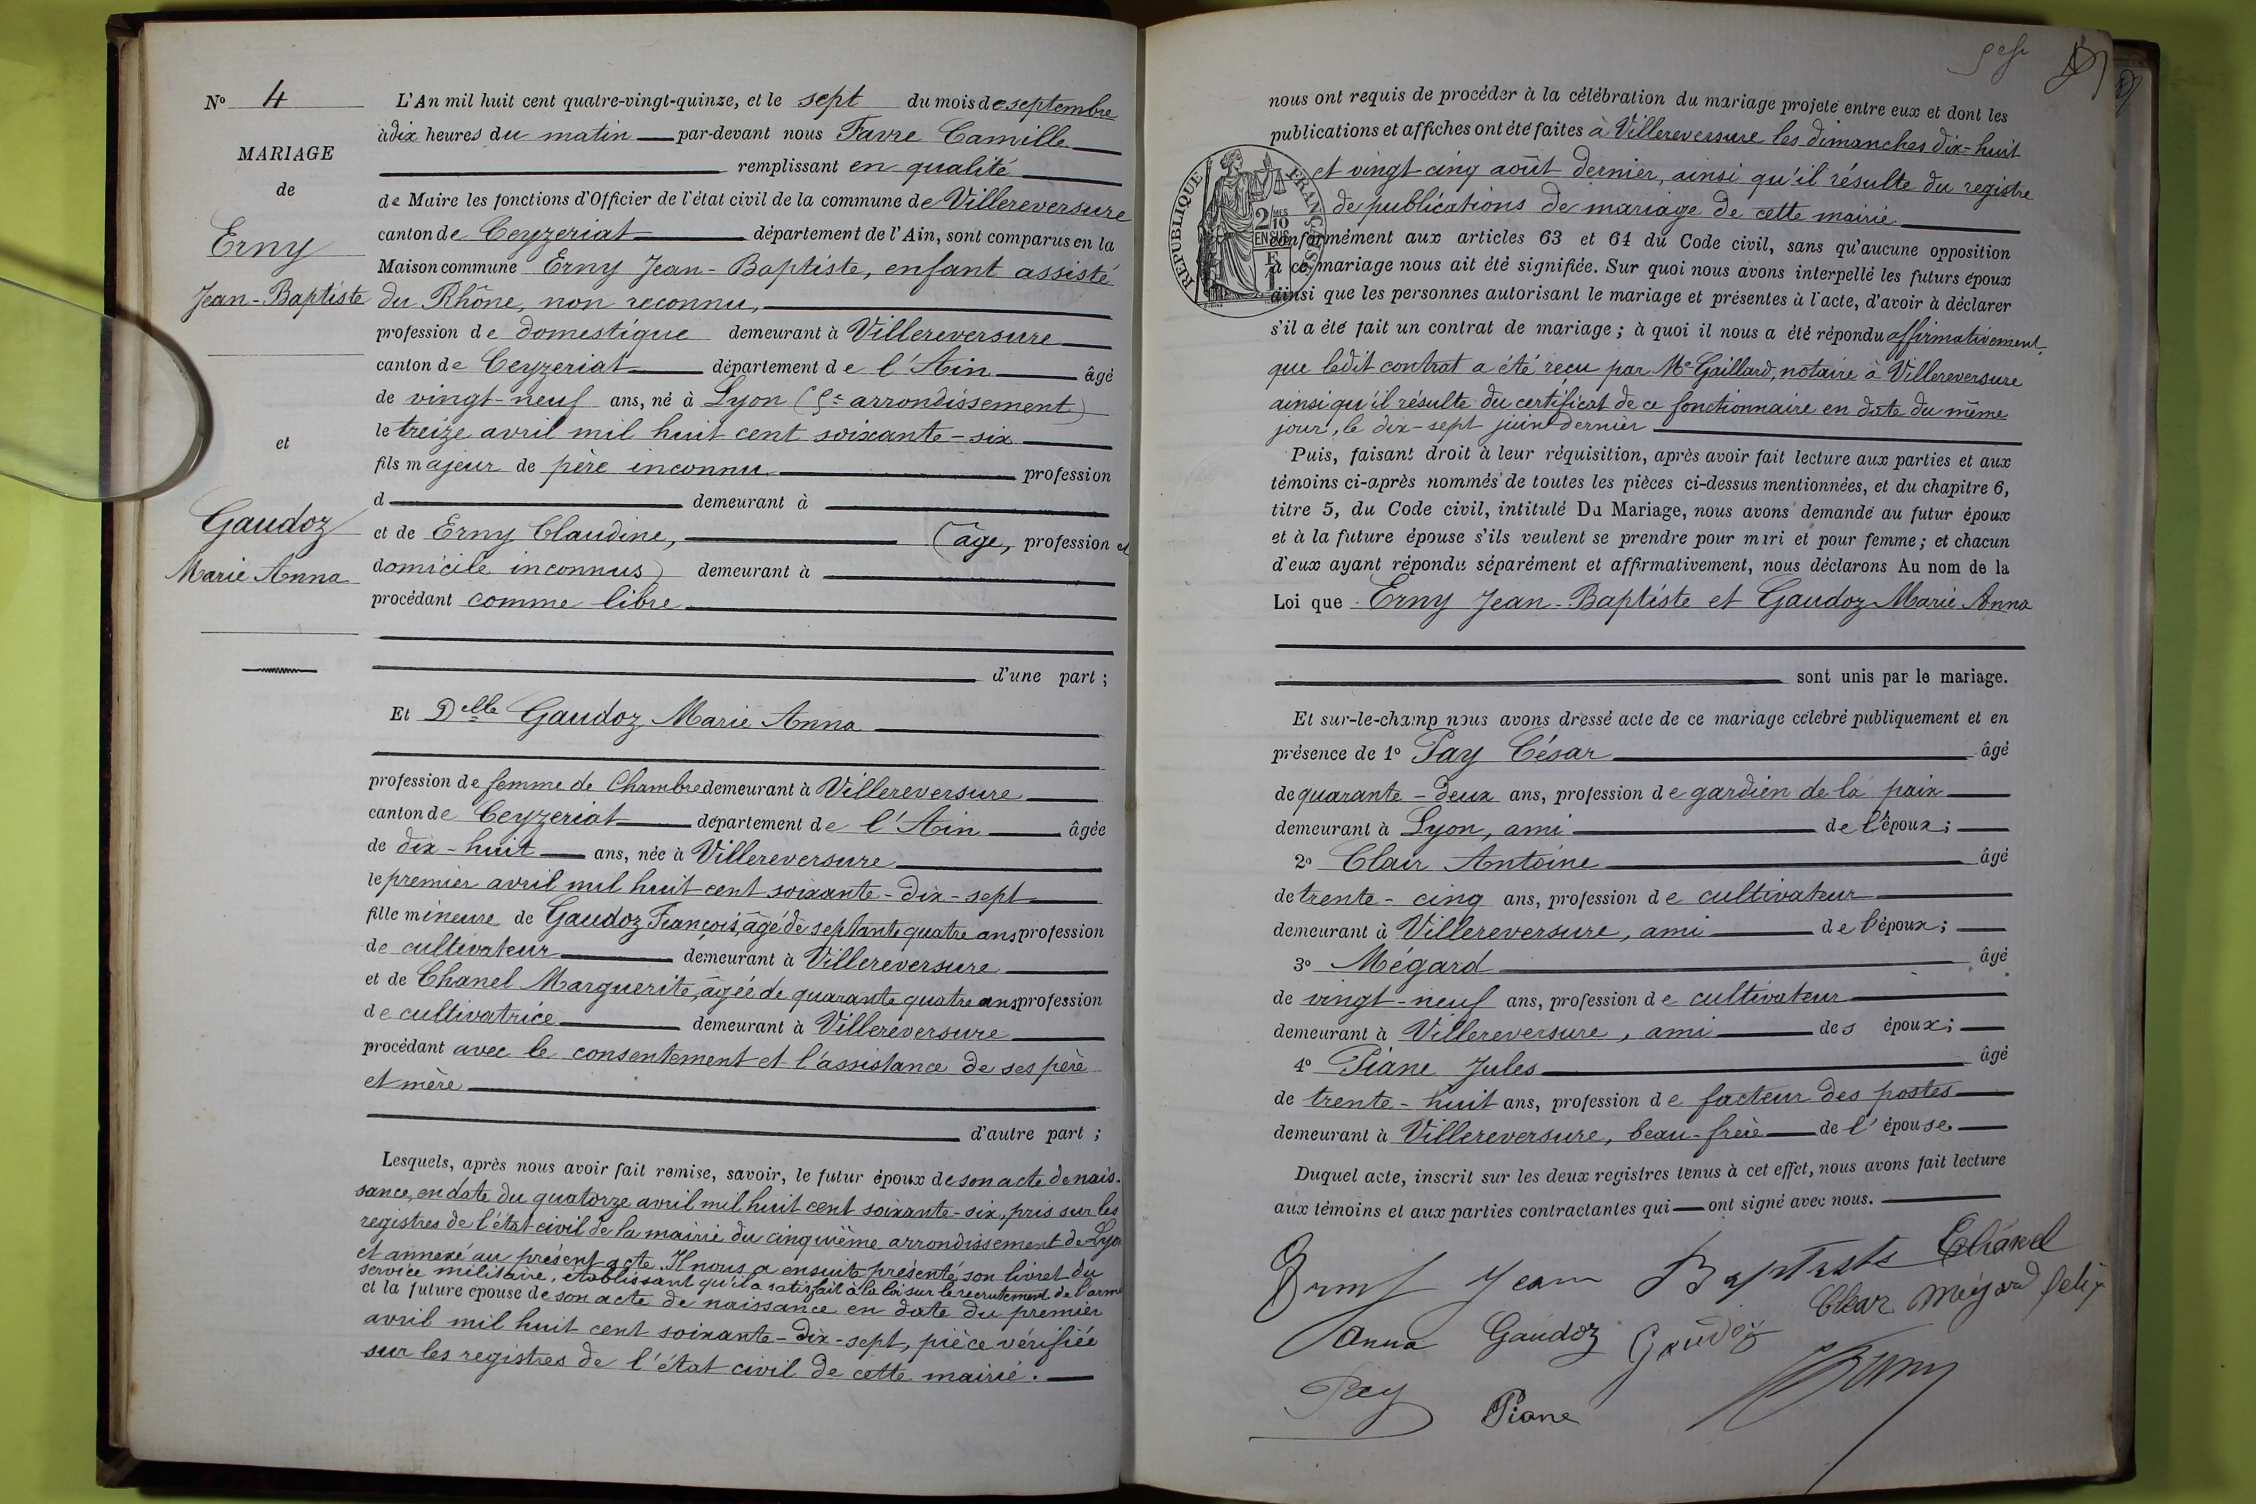 N° 4
MARIAGE
de
Erny
Jean-Baptiste
et
Gaudoz
Marie Anna
L'An mil huit cent quatre-vingt-quinze, et le sept du mois de septembre
à dix heures du matin par-devant nous Favre Camille
remplissant en qualité
de Maire les fonctions d'Officier de l'état civil de la commune de Villereversure
canton de Ceyzeriat département de l'Ain, sont comparus en la
Maison commune Erny Jean-Baptiste, enfant assisté
du Rhône, non reconnu,
profession de domestique demeurant à Villereversure
canton de Ceyzeriat département de l'Ain âgé
de vingt-neuf ans, né à Lyon (5e arrondissement)
le treize avril mil huit cent soixante-six
fils majeur de père inconnu profession
d demeurant à
et de Erny Claudine, (âge, profession et
domicile inconnus) demeurant à
procédant comme libre
d'une part ;
Et Delle Gaudoz Marie Anna
profession de femme de Chambre demeurant à Villereversure
canton de Ceyzeriat département de l'Ain âgée
de dix-huit ans, née à Villereversure
le premier avril mil huit cent soixante-dix-sept
fille mineure de Gaudoz François, âgé de septante quatre ans profession
de cultivateur demeurant à Villereversure
et de Chanel Marguerite, âgée de quarante quatre ans profession
de cultivatrice demeurant à Villereversure
procédant avec le consentement et l'assistance de ses père
et mère
d'autre part ;
Lesquels, après nous avoir fait remise, savoir, le futur époux de son acte de nais-
sance, en date du quatorze avril mil huit cent soixante-six, pris sur les
registres de l'état civil de la mairie du cinquième arrondissement de Lyon
et annexé au présent acte. Il nous a ensuite présenté son livret du
service militaire, établissant qu'il a satisfait à la loi sur le recrutement de l'armé
et la future épouse de son acte de naissance en date du premier
avril mil huit cent soixante-dix-sept, pièce vérifiée
sur les registres de l'état civil de cette mairie.
nous ont requis de procéder à la célébration du mariage projeté entre eux et dont les
publications et affiches ont été faites à Villereversure les dimanches dix-huit
et vingt cinq août dernier, ainsi qu'il résulte du registre
de publications de mariage de cette mairie
conformément aux articles 63 et 64 du Code civil, sans qu'aucune opposition
à ce mariage nous ait été signifiée. Sur quoi nous avons interpellé les futurs époux
ainsi que les personnes autorisant le mariage et présentes à l'acte, d'avoir à déclarer
s'il a été fait un contrat de mariage ; à quoi il nous a été répondu affirmativement,
que ledit contrat a été reçu par Me Gaillard, notaire à Villereversure
ainsi qu'il résulte du certificat de ce fonctionnaire en date du même
jour, le dix-sept juin dernier
Puis, faisant droit à leur réquisition, après avoir fait lecture aux parties et aux
témoins ci-après nommés de toutes les pièces ci-dessus mentionnées, et du chapitre 6,
titre 5, du Code civil, intitulé Du Mariage, nous avons demandé au futur époux
et à la future épouse s'ils veulent se prendre pour mari et pour femme ; et chacun
d'eux ayant répondu séparément et affirmativement, nous déclarons Au nom de la
Loi que Erny Jean-Baptiste et Gaudoz Marie Anna
sont unis par le mariage.
Et sur-le-champ nous avons dressé acte de ce mariage célébré publiquement et en
présence de 1° Pay César âgé
de quarante-deux ans, profession de gardien de la paix
demeurant à Lyon, ami de l'époux ;
2° Clair Antoine âgé
de trente-cinq ans, profession de cultivateur
demeurant à Villereversure, ami de l'époux ;
3° Mégard âgé
de vingt-neuf ans, profession de cultivateur
demeurant à Villereversure, ami des époux ;
4° Piane Jules âgé
de trente-huit ans, profession de facteur des postes
demeurant à Villereversure, beau-frère de l'épouse
Duquel acte, inscrit sur les deux registres tenus à cet effet, nous avons fait lecture
aux témoins et aux parties contractantes qui ont signé avec nous.
RÉPUBLIQUE FRANÇAISE
2/10
EN SUS
Erny Jean Baptiste Chanel
Clear Mégard felix
Anna Gaudoz Gaudoz
Pay Piane